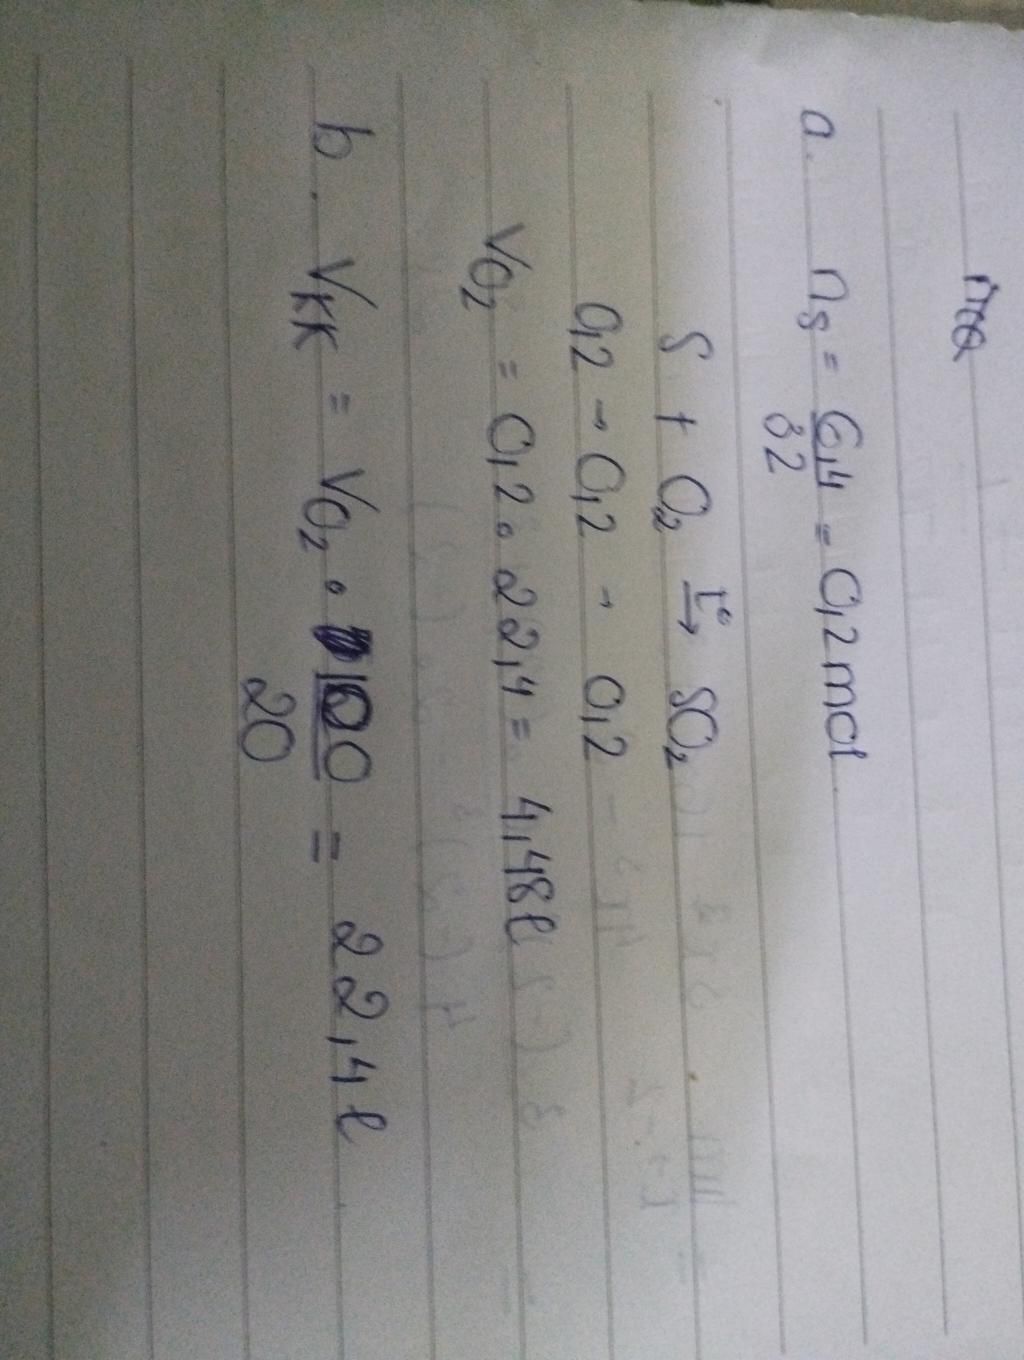 a. nS = 6,4/32 = 0,2 mol
S + O₂ t°→ SO₂
0,2 → 0,2 → 0,2
VO₂ = 0,2 . 22,4 = 4,48 l
b. Vkk = VO₂ . 100/20 = 22,4 l